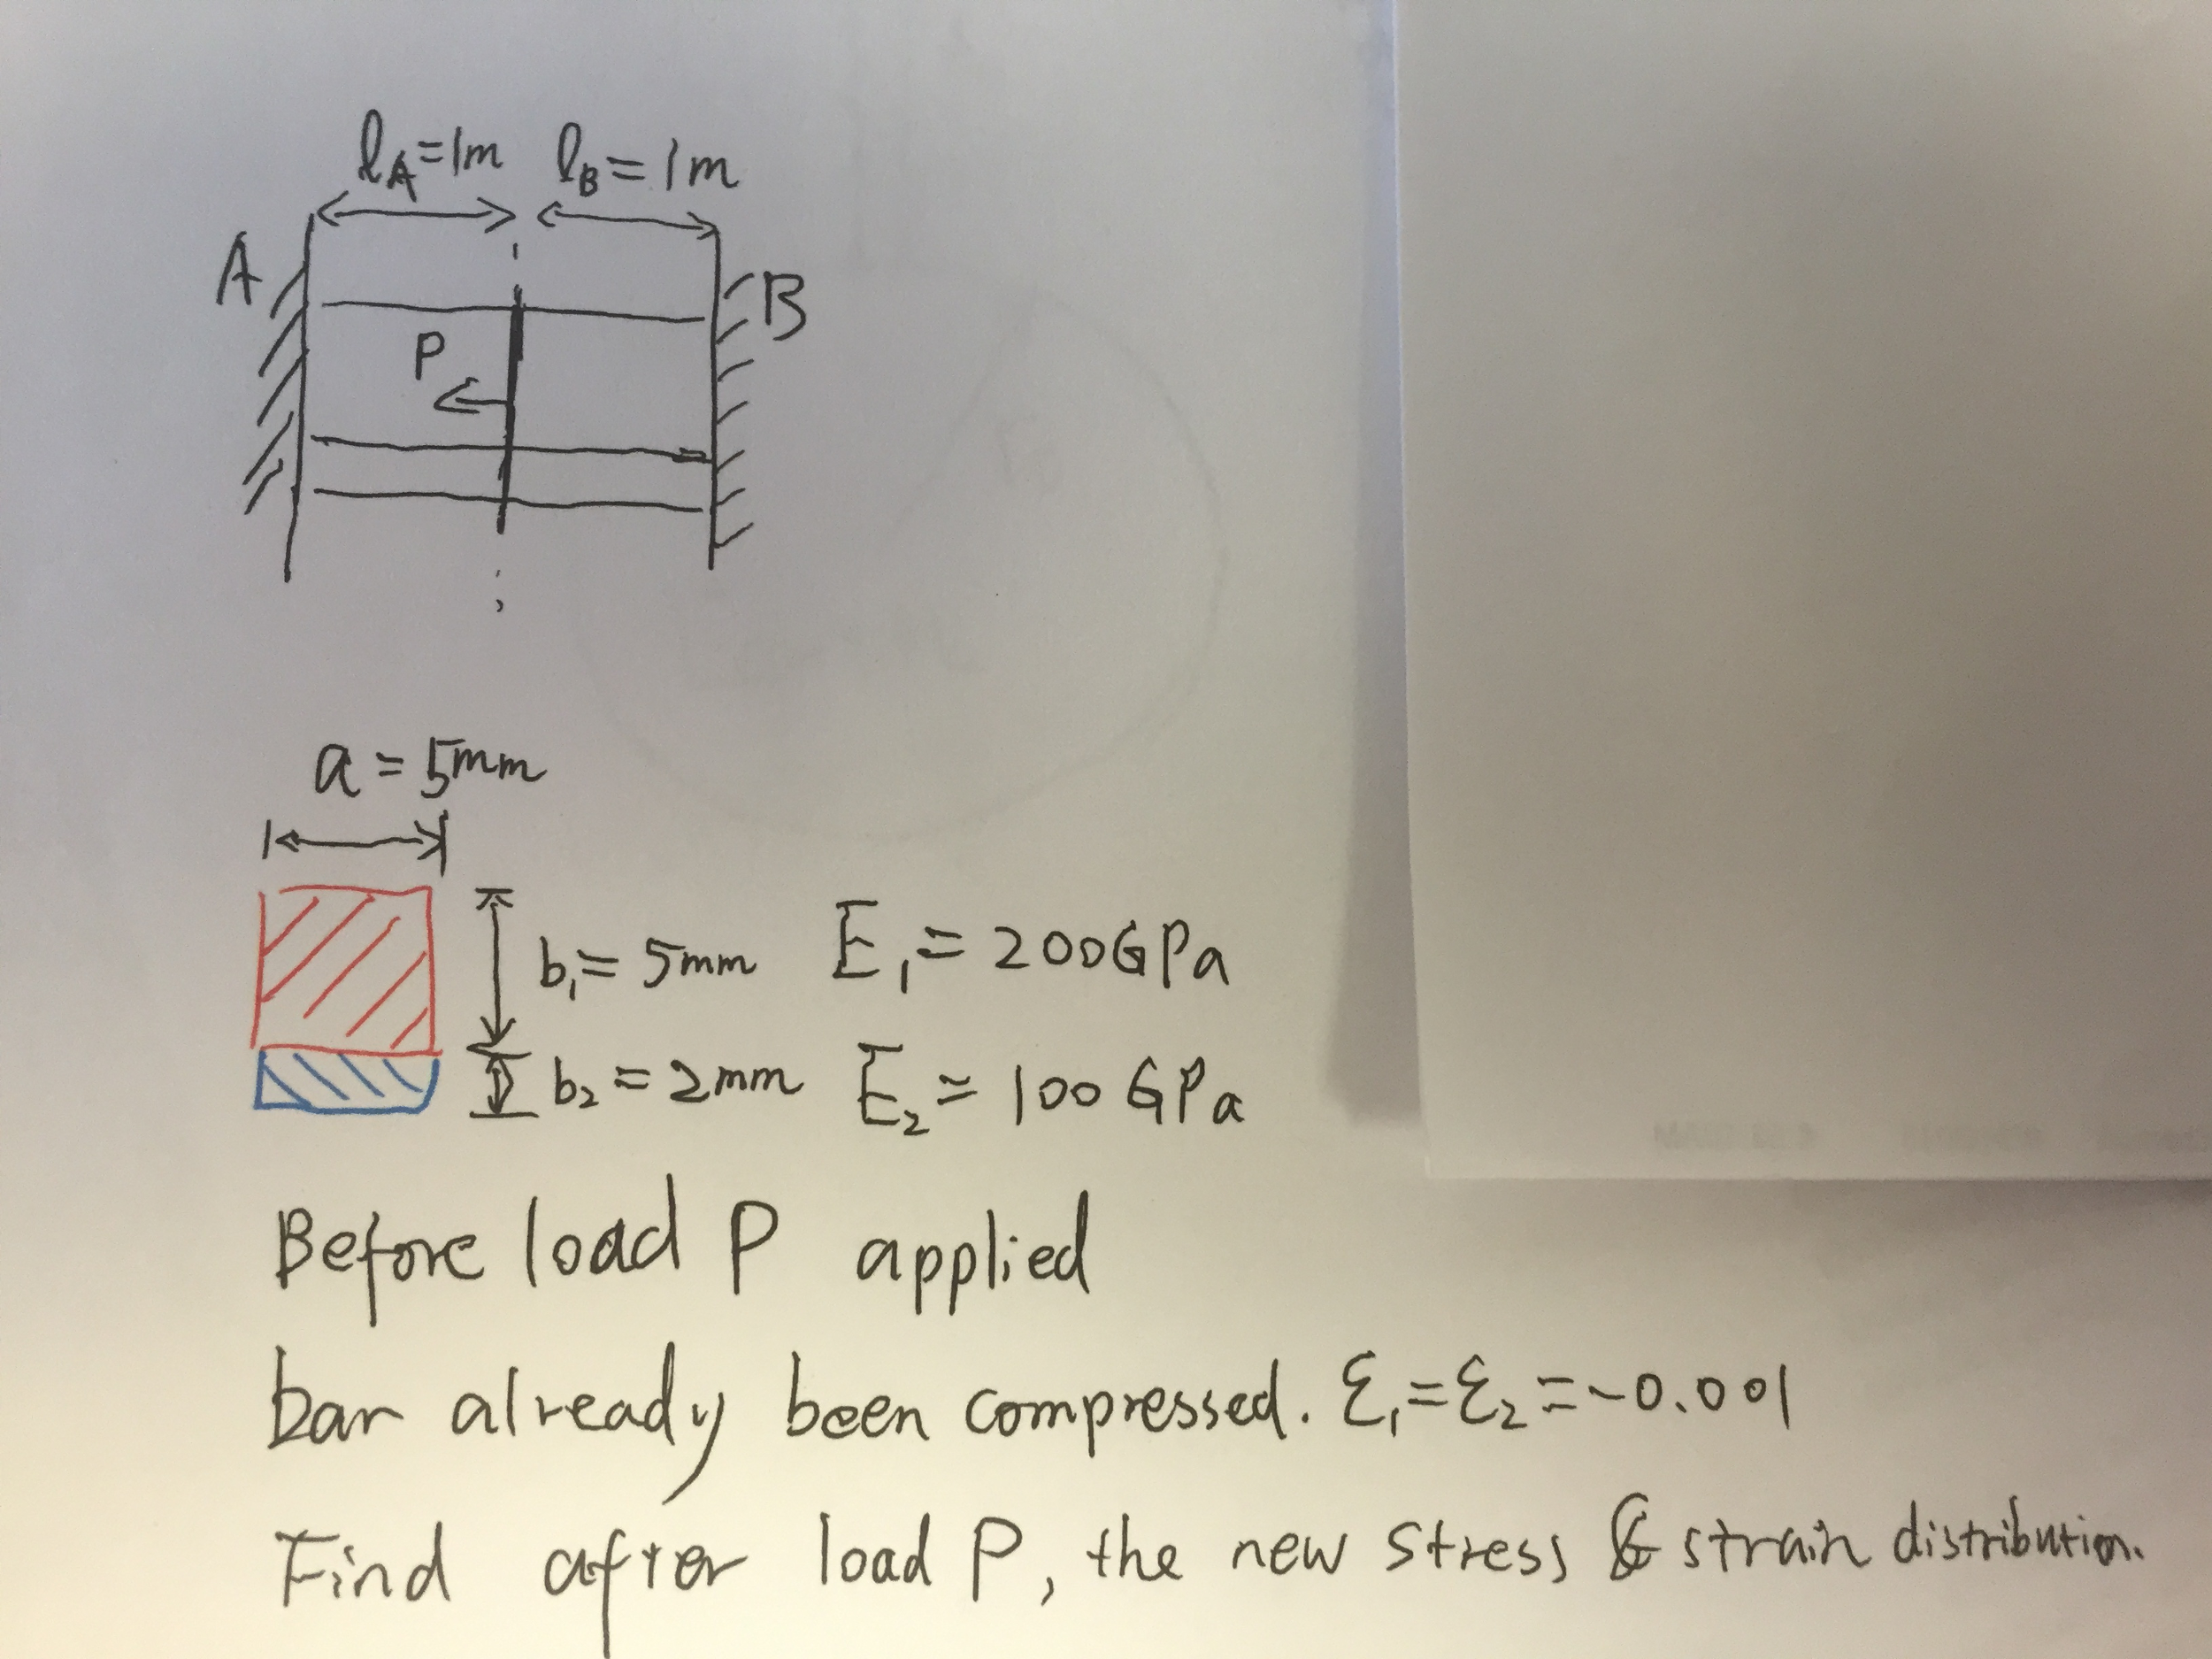 ℓA=1m ℓB=1m
A B
P
a = 5mm
b₁= 5mm E₁= 200GPa
b₂ = 2mm E₂= 100 GPa
Before load P applied
bar already been compressed. Ɛ₁=Ɛ₂=-0.001
Find after load P, the new stress & strain distribution.